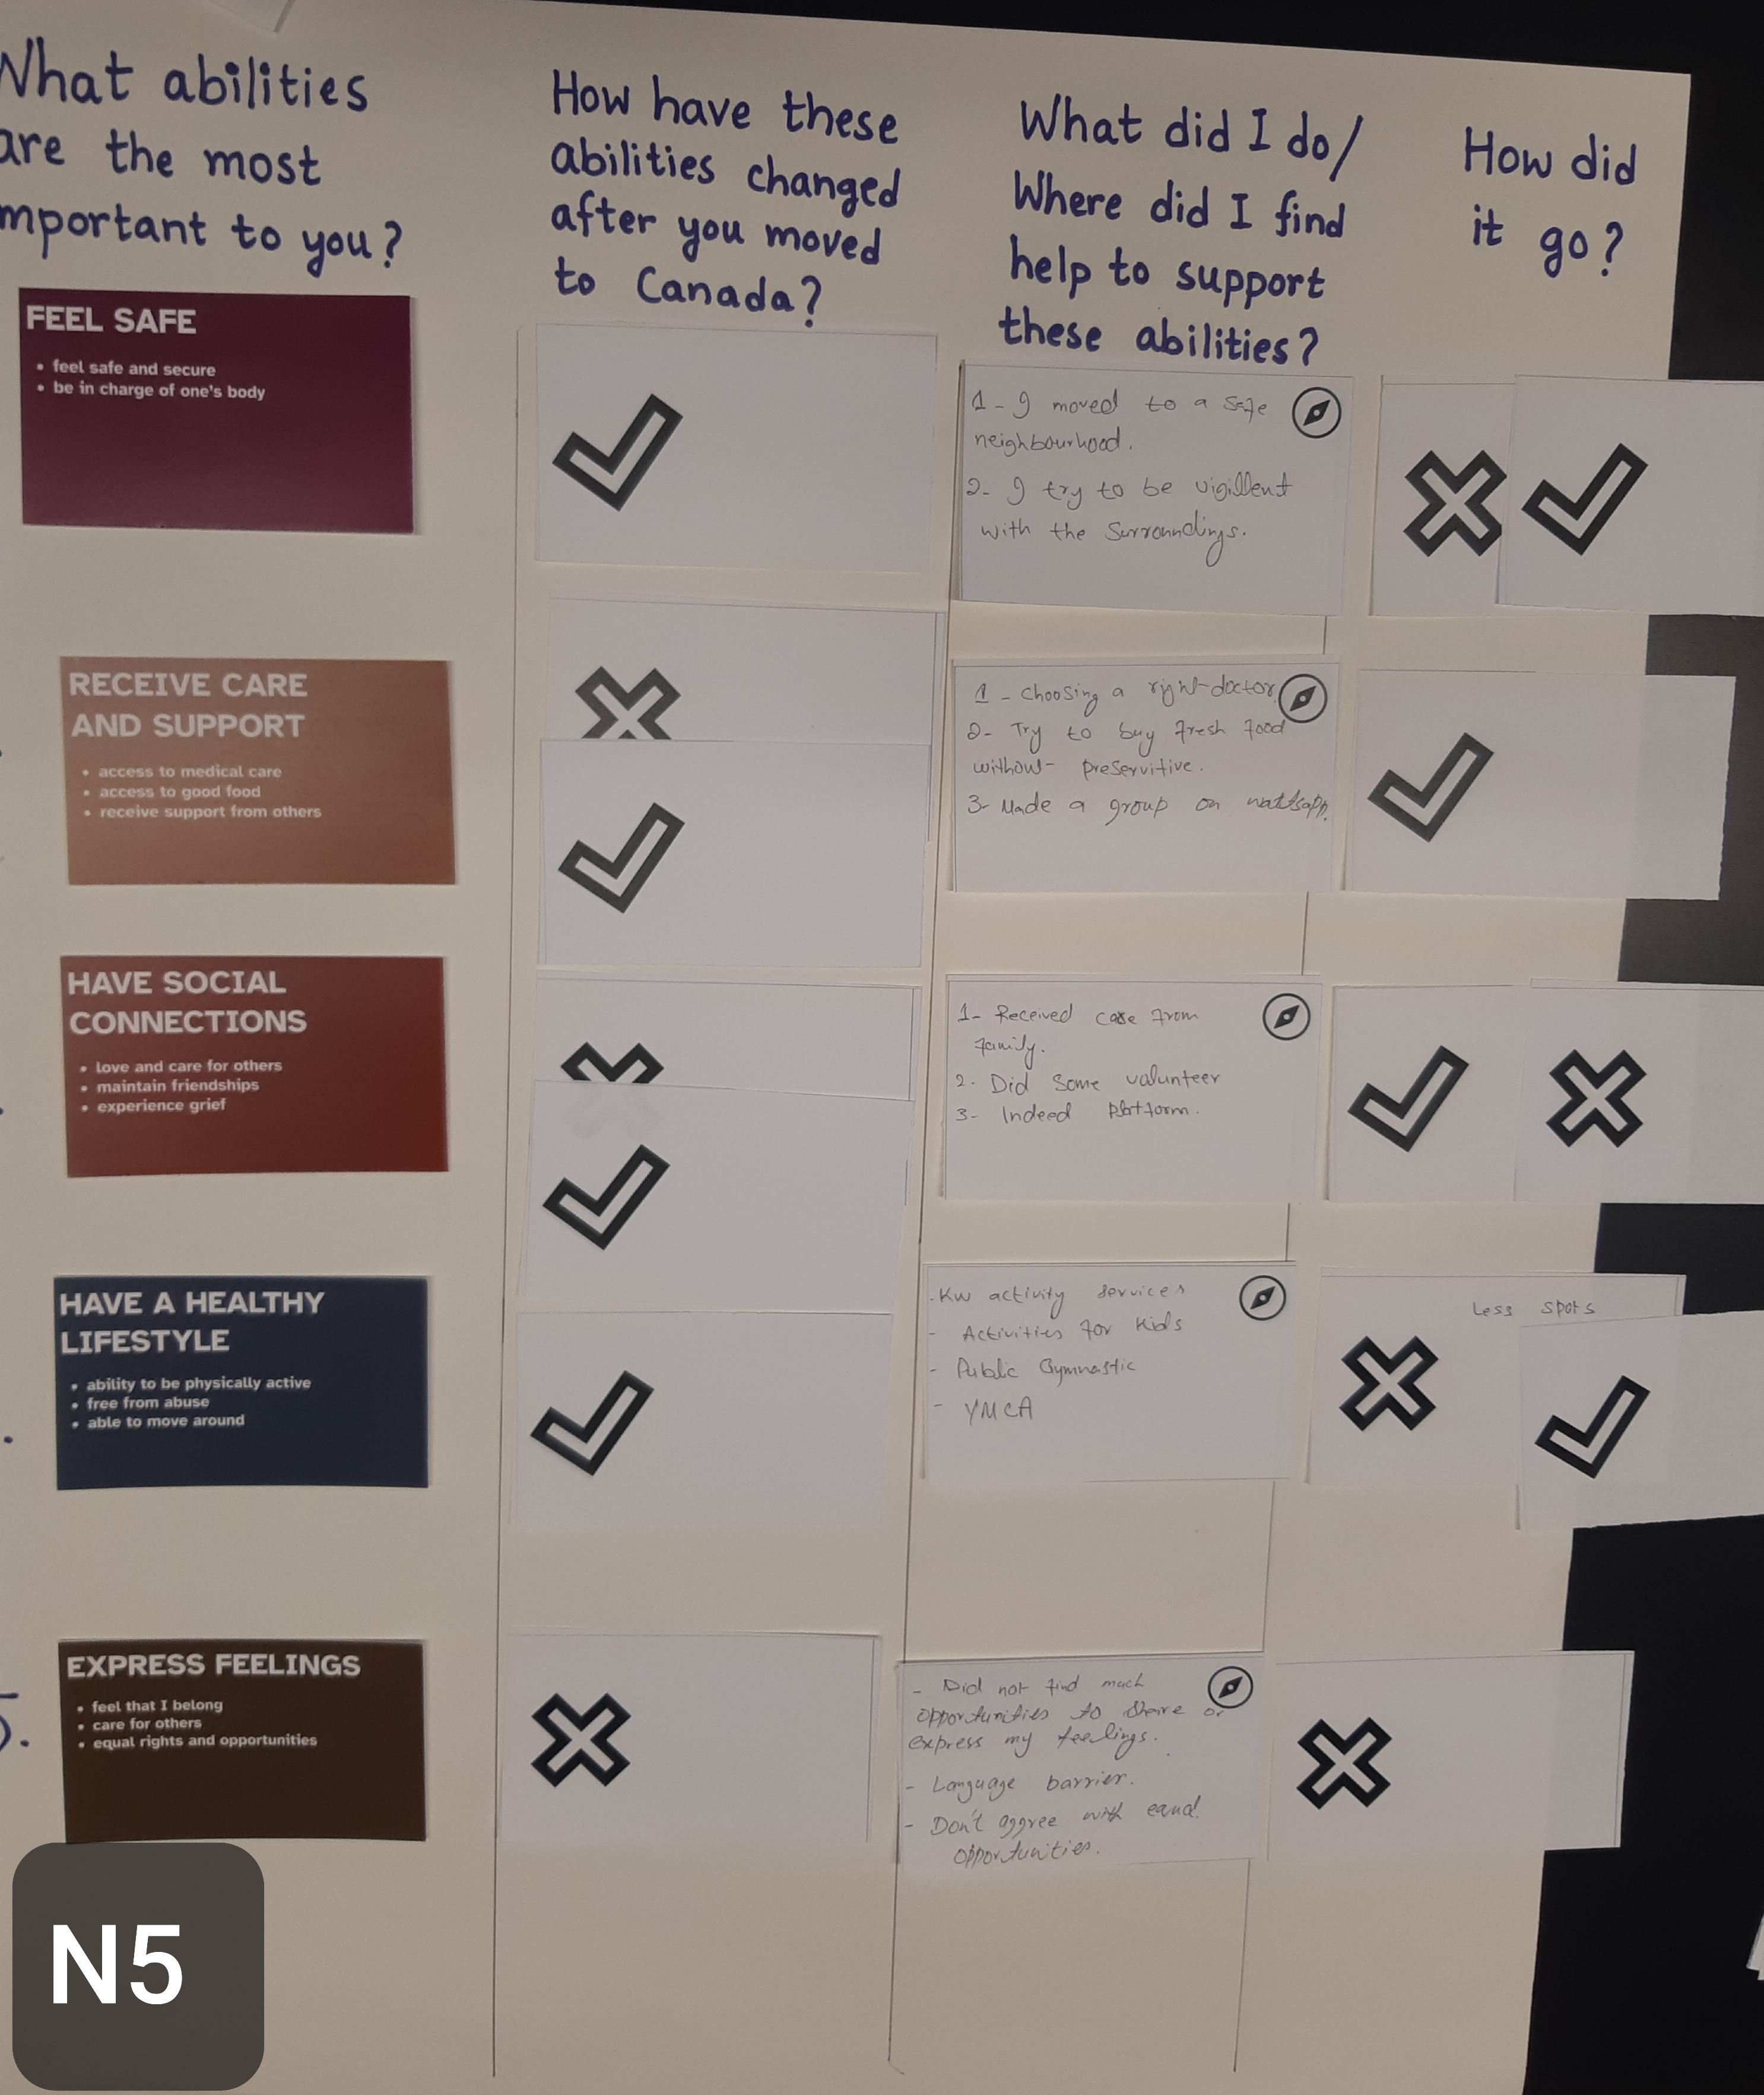 What abilities
are the most
mportant to you?
How have these
abilities changed
after you moved
to Canada?
What did I do/
Where did I find
help to support
these abilities?
How did
it go?
FEEL SAFE
• feel safe and secure
• be in charge of one's body
1- I moved to a safe
neighbourhood.
2- I try to be vigillent
with the surroundings.
RECEIVE CARE
AND SUPPORT
• access to medical care
• access to good food
• receive support from others
1- Choosing a right doctor
2- Try to buy fresh food
without preservitive.
3- Made a group on wattsapp.
HAVE SOCIAL
CONNECTIONS
• love and care for others
• maintain friendships
• experience grief
1- Received care from
family.
2- Did some valunteer
3- Indeed platform.
HAVE A HEALTHY
LIFESTYLE
• ability to be physically active
• free from abuse
• able to move around
- KW activity services
- Activities for kids
- Public Gymnastic
- YMCA
Less spots
5.
EXPRESS FEELINGS
• feel that I belong
• care for others
• equal rights and opportunities
- Did not find much
opportunities to share or
express my feelings.
- Language barrier.
- Don't aggree with equal
opportunities.
N5